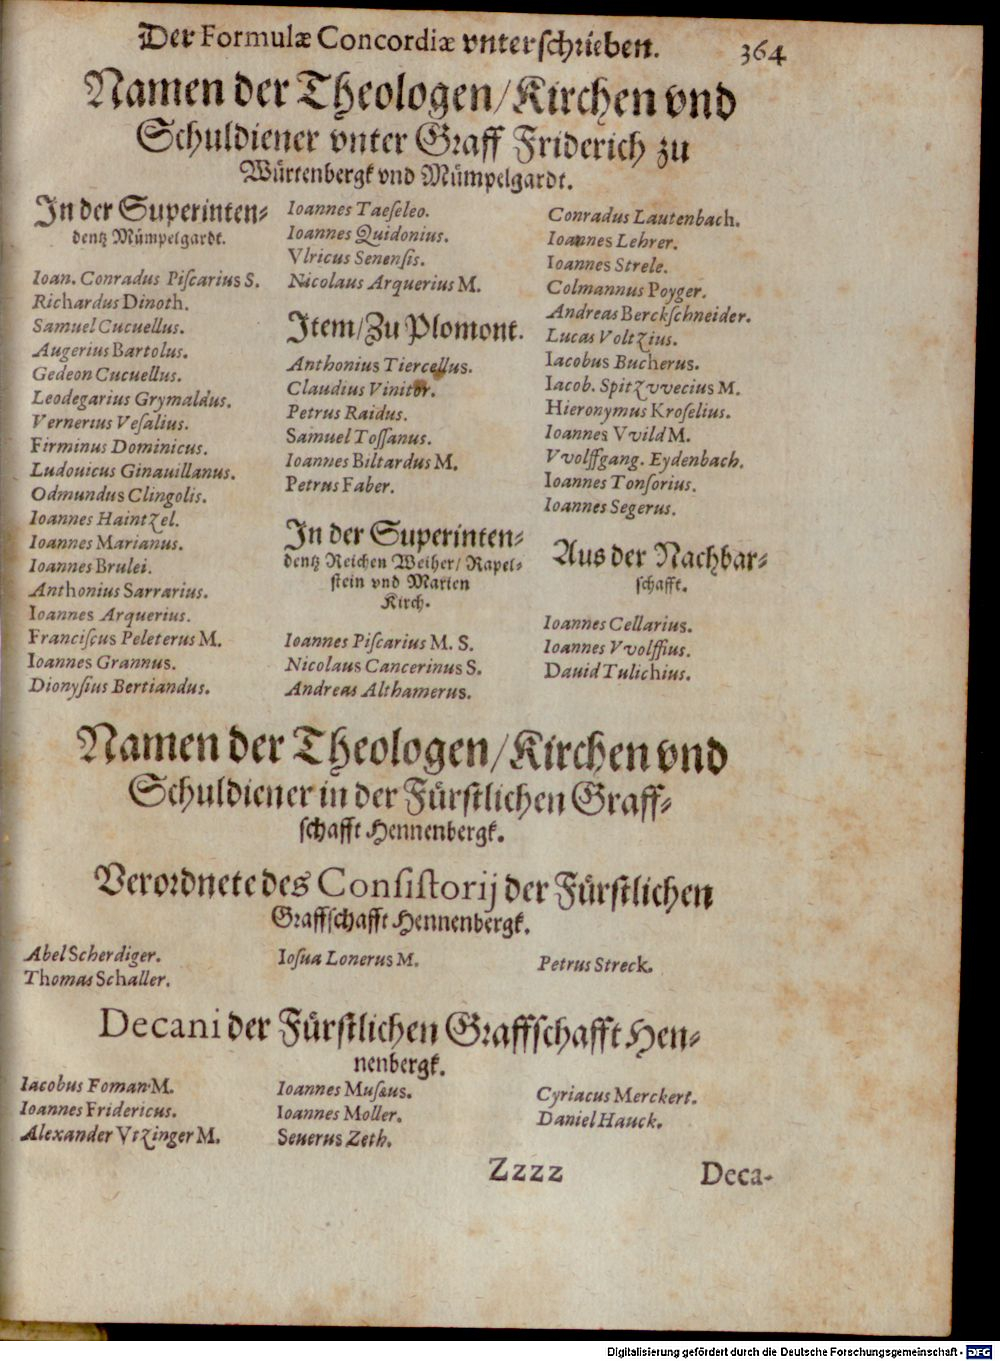 Der Formulæ Concordiæ vnterschrieben. 364
Namen der Theologen/Kirchen vnd
Schuldiener vnter Graff Friderich zu
Würtenbergk vnd Mümpelgardt.
In der Superinten-
dentz Mümpelgardt.
Ioan. Conradus Piſcarius S.
Richardus Dinoth.
Samuel Cucuellus.
Augerius Bartolus.
Gedeon Cucuellus.
Leodegarius Grymaldus.
Vernerius Veſalius.
Firminus Dominicus.
Ludouicus Ginauillanus.
Odmundus Clingolis.
Ioannes Haintzel.
Ioannes Marianus.
Ioannes Brulei.
Anthonius Sarrarius.
Ioannes Arquerius.
Franciſcus Peleterus M.
Ioannes Grannus.
Dionyſius Bertiandus.
Ioannes Taeſeleo.
Ioannes Quidonius.
Vlricus Senenſis.
Nicolaus Arquerius M.
Item/Zu Plomont.
Anthonius Tiercellus.
Claudius Vinitor.
Petrus Raidus.
Samuel Toſſanus.
Ioannes Biltardus M.
Petrus Faber.
In der Superinten-
dentz Reichen Weiher/ Rapel-
stein vnd Marien
Kirch.
Ioannes Piſcarius M. S.
Nicolaus Cancerinus S.
Andreas Althamerus.
Conradus Lautenbach.
Ioannes Lehrer.
Ioannes Strele.
Colmannus Poyger.
Andreas Berckſchneider.
Lucas Voltzius.
Iacobus Bucherus.
Iacob. Spitzvvecius M.
Hieronymus Kroſelius.
Ioannes Vvild M.
Vvolffgang. Eydenbach.
Ioannes Tonſorius.
Ioannes Segerus.
Aus der Nachbar-
schafft.
Ioannes Cellarius.
Ioannes Vvolffius.
Dauid Tulichius.
Namen der Theologen/Kirchen vnd
Schuldiener in der Fürstlichen Graff-
schafft Hennenbergk.
Verordnete des Consistorij der Fürstlichen
Graffschafft Hennenbergk.
Abel Scherdiger.
Thomas Schaller.
Ioſua Lonerus M.
Petrus Streck.
Decani der Fürstlichen Graffschafft Hen-
nenbergk.
Iacobus Foman M.
Ioannes Fridericus.
Alexander Vtzinger M.
Ioannes Muſæus.
Ioannes Moller.
Seuerus Zeth.
Cyriacus Merckert.
Daniel Hauck.
Zzzz Deca-
Digitalisierung gefördert durch die Deutsche Forschungsgemeinschaft - DFG